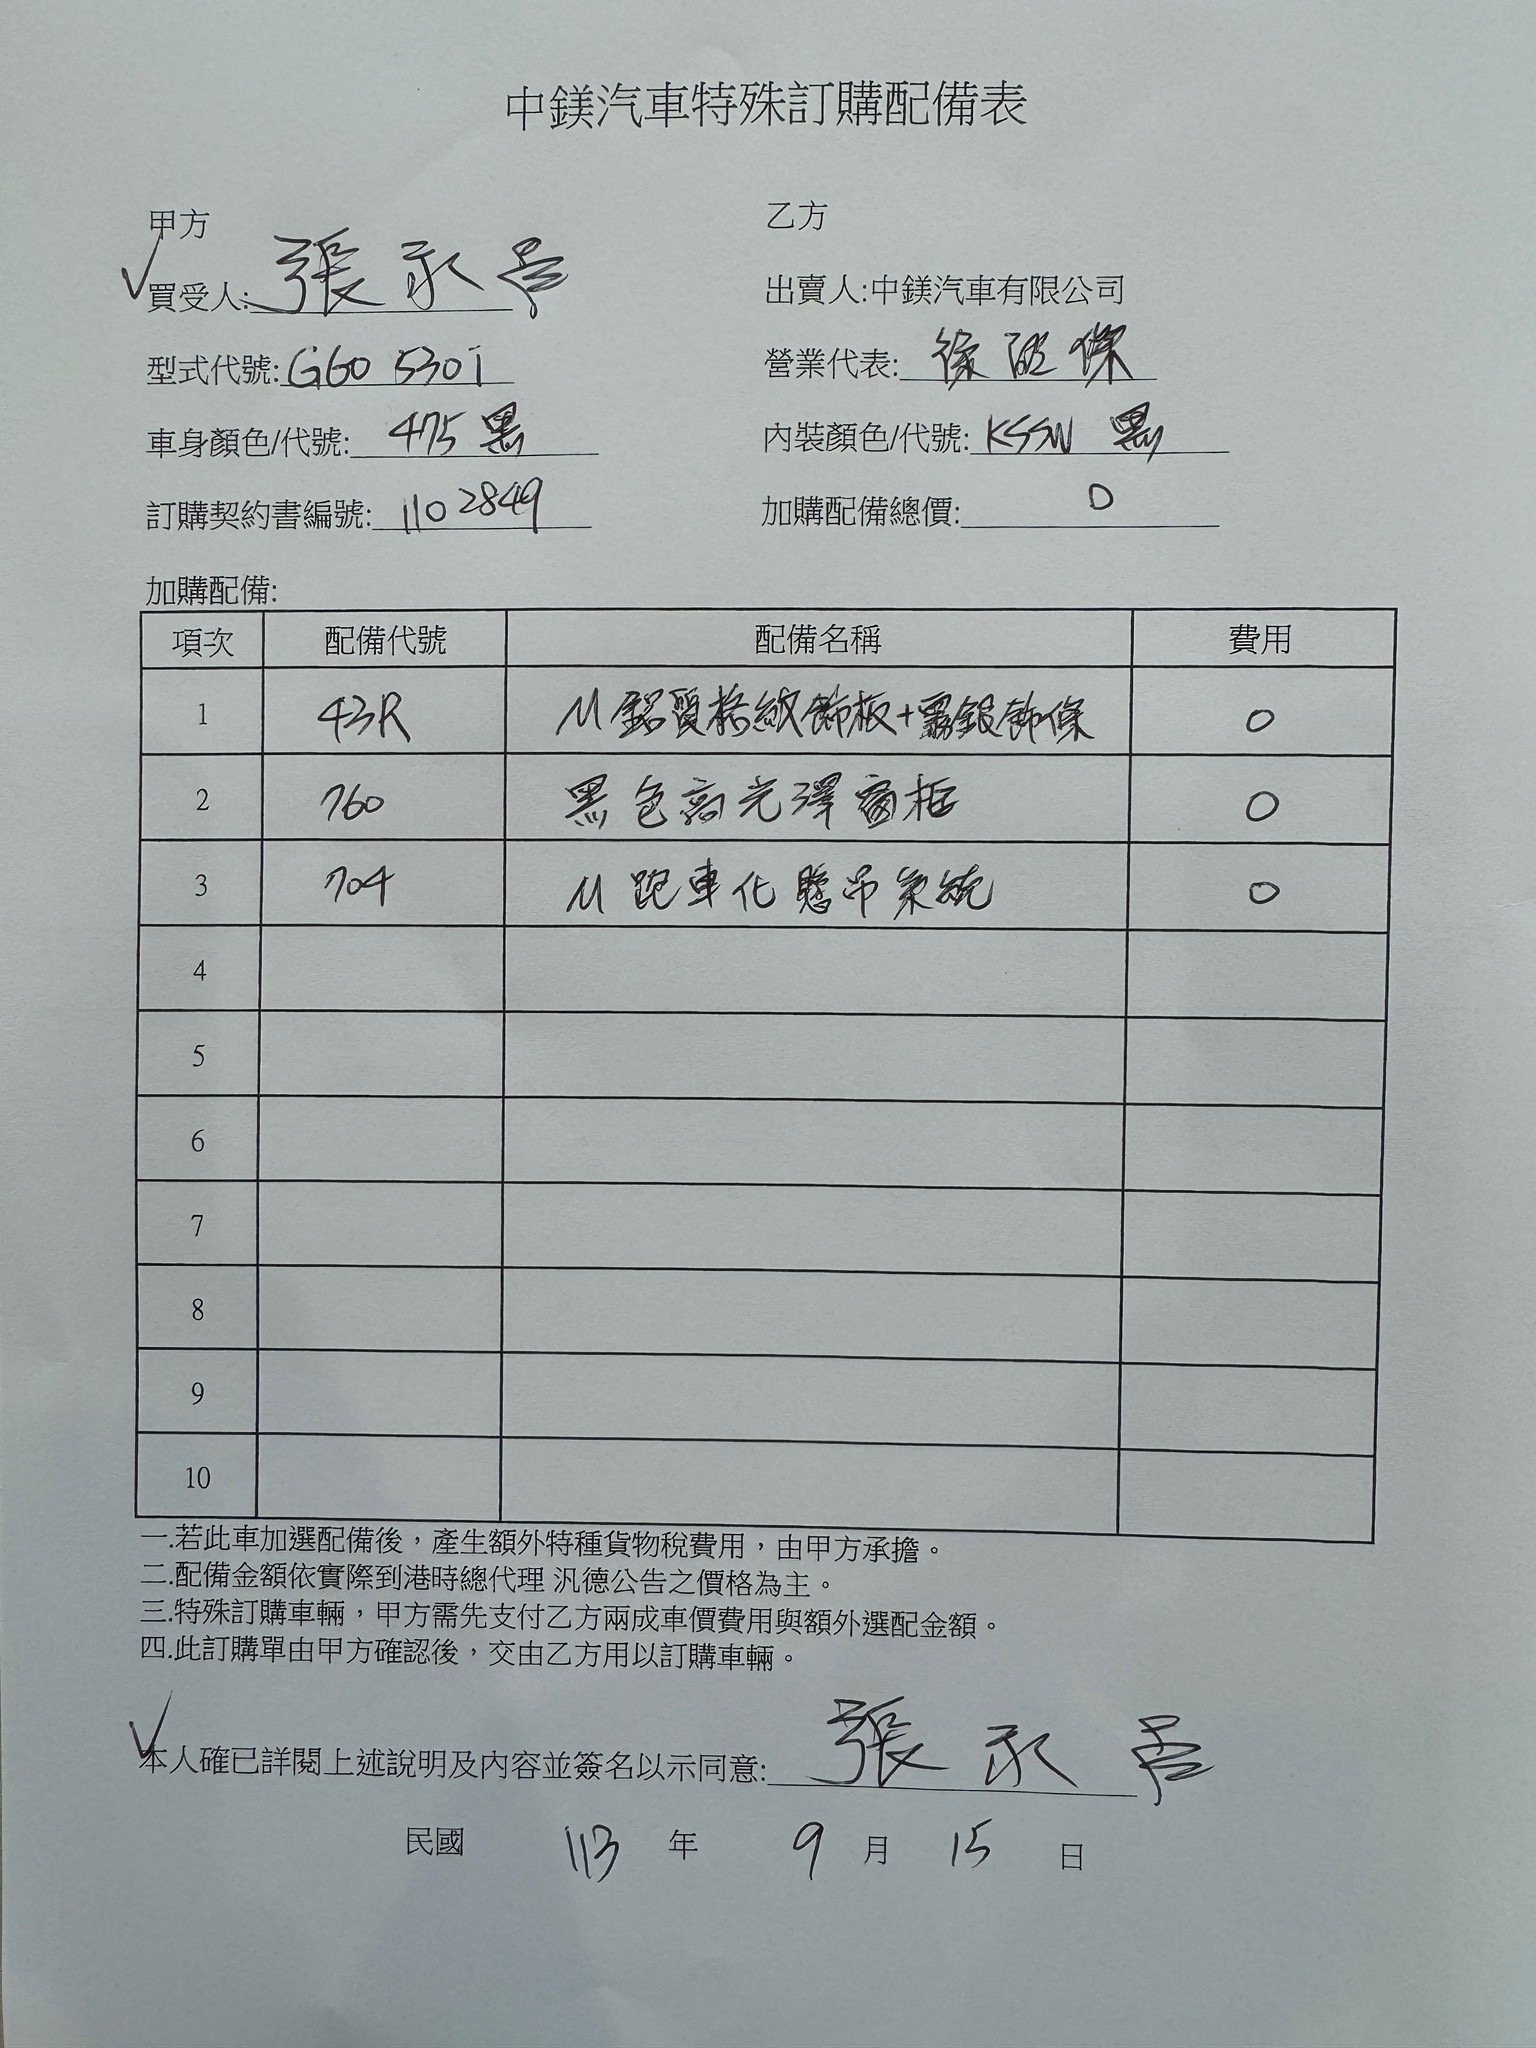 中鎂汽車特殊訂購配備表
甲方
乙方
買受人: 張永
出賣人:中鎂汽車有限公司
型式代號: G60 530i
營業代表: 徐 傑
車身顏色/代號: 475 黑
內裝顏色/代號: KSSW 黑
訂購契約書編號: 1102849
加購配備總價: 0
加購配備:
項次 配備代號 配備名稱 費用
1 43R M 鋁質格紋飾板+霧銀飾條 0
2 760 黑色高光澤窗框 0
3 704 M 跑車化懸吊系統 0
4
5
6
7
8
9
10
一.若此車加選配備後，產生額外特種貨物稅費用，由甲方承擔。
二.配備金額依實際到港時總代理 汎德公告之價格為主。
三.特殊訂購車輛，甲方需先支付乙方兩成車價費用與額外選配金額。
四.此訂購單由甲方確認後，交由乙方用以訂購車輛。
本人確已詳閱上述說明及內容並簽名以示同意: 張永
民國 113 年 9 月 15 日